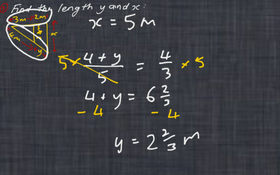 Find the length y and x:
3m 2m
x = 5 m
5 × (4 + y)/5 = 4/3 × 5
4 + y = 6 2/3
- 4 - 4
y = 2 2/3 m